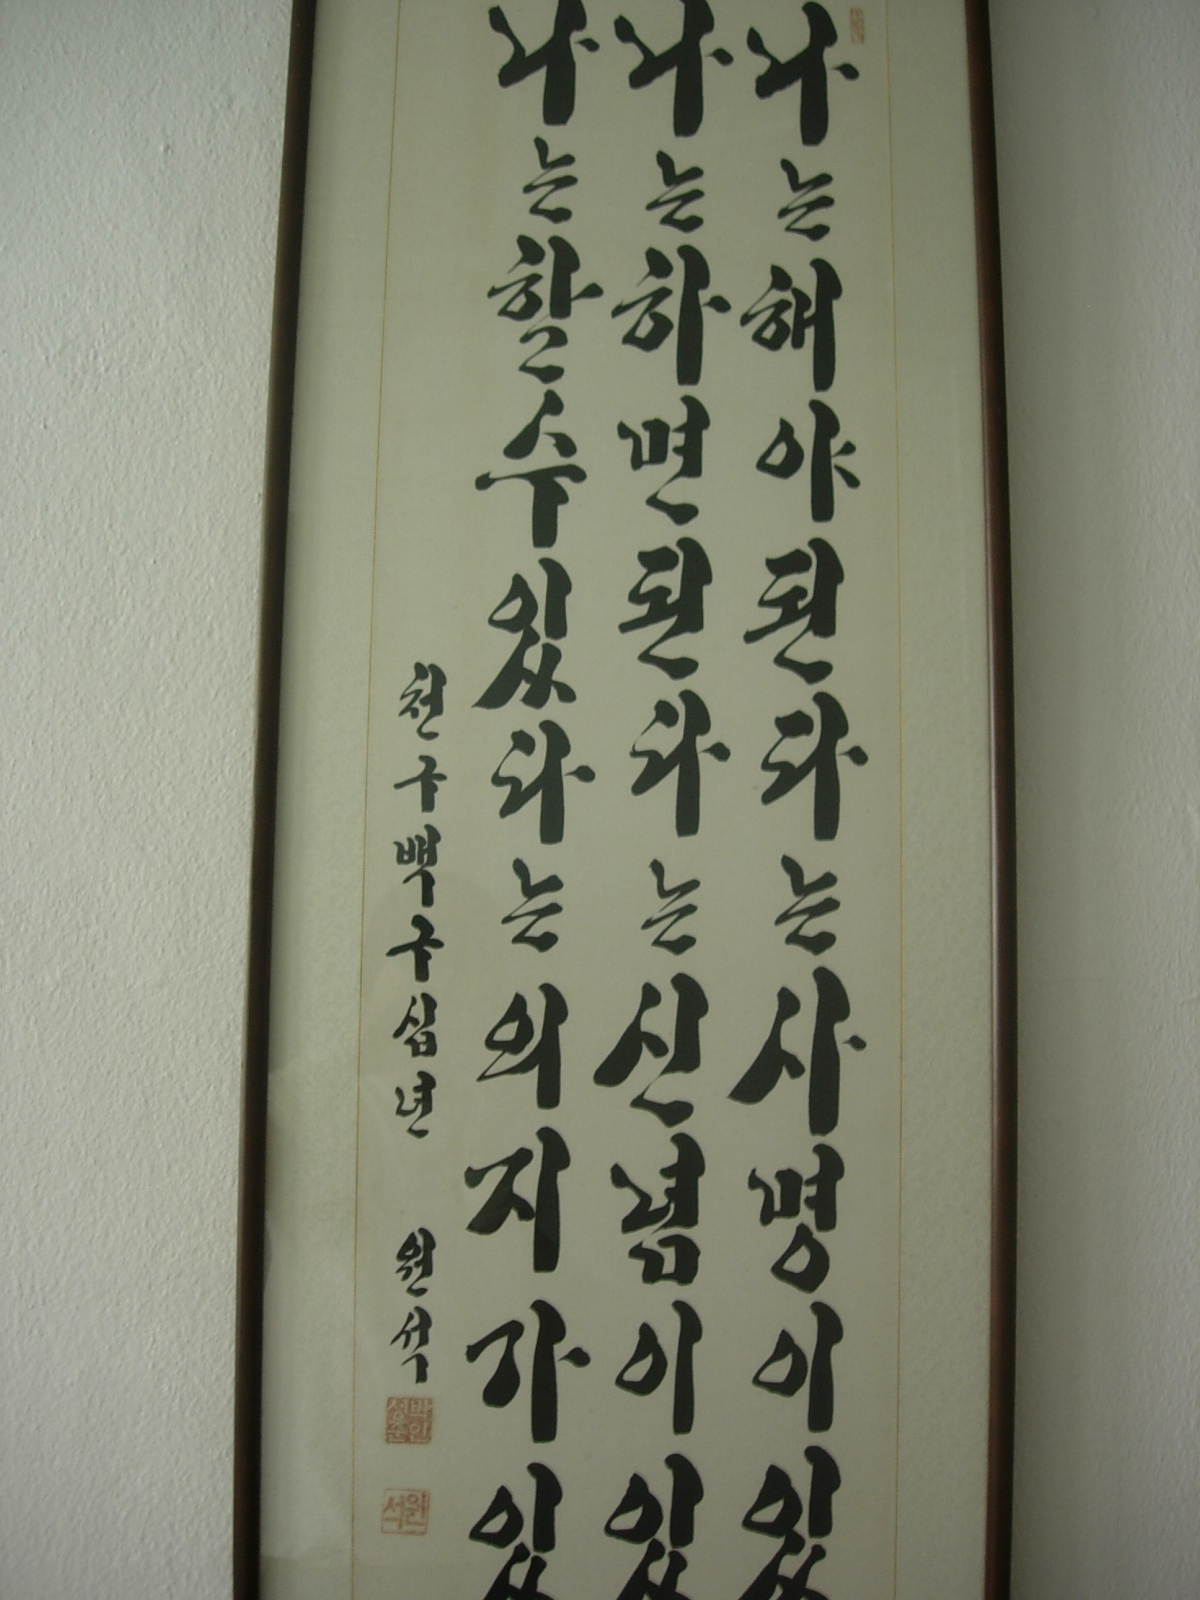 나는해야된다는사명이있
나는하면된다는신념이있
나는할수있다는의지가있
천구백구십년 원석